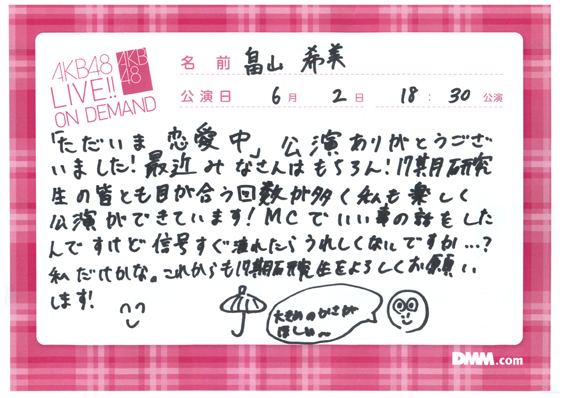 AKB48
LIVE!!
ON DEMAND
AKB
48
名前 畠山 希美
公演日 6月 2日 18:30公演
「ただいま 恋愛中」公演ありがとうござい
ました!最近みなさんはもちろん!17期研究
生の皆とも目が合う回数が多く私も楽しく
公演ができています!MCでいい事の話をした
んですけど信号すぐ渡れたらうれしくないですか…?
私だけかな。これからも17期研究生をよろしくお願い
します!
大きめのかさが
ほしい〜
DMM.com